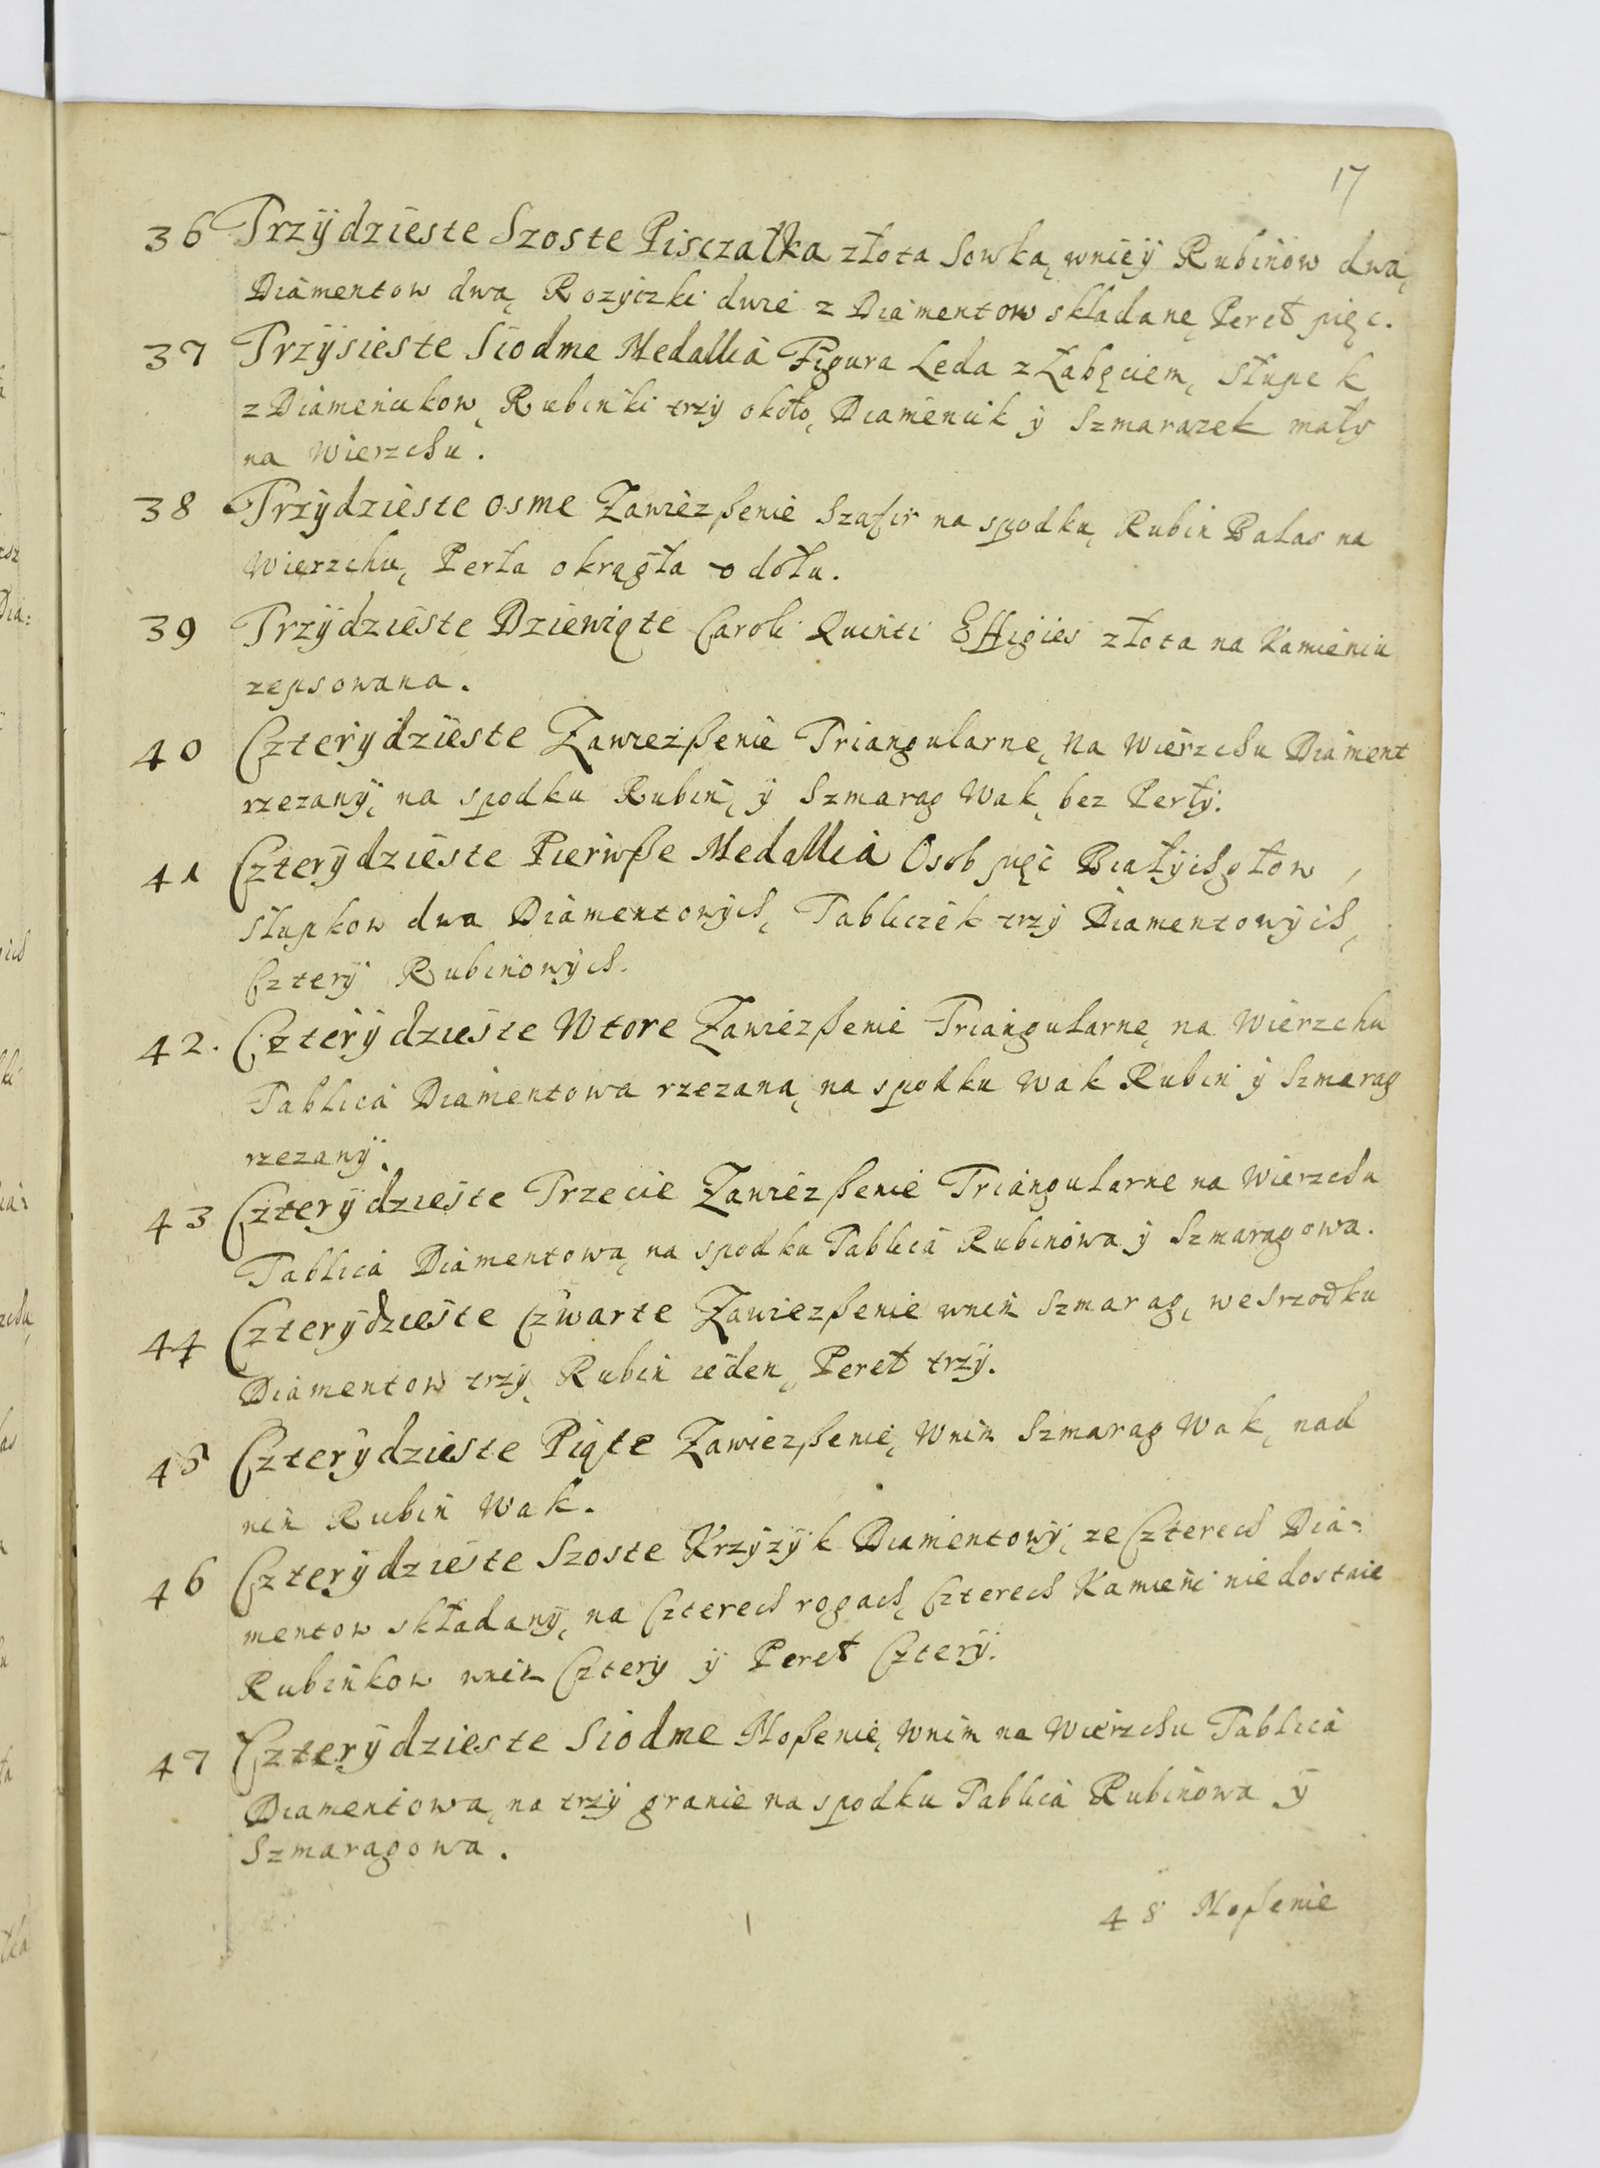 17
36 Trzÿdzieste Szoste Pisczałka złota Sowką, wnieÿ Rubinow dwa,
Diamentow dwa, Rozyczki dwie z Diamentow składane, Pereł pięc.
37 Trzÿsieste Siodme Medallia Figura Leda z Łabęciem, Słupek
z Diamencikow, Rubinki trzy około, Diamencik ÿ Szmarazek mały
na Wierzchu.
38 Trzÿdzieste osme Zawiezßenie Szafir na spodku, Rubin Balas na
Wierzchu, Perła okrągła o dołu.
39 Trzÿdzieste Dziewiąte Caroli Quinti Effigies złota na Kamieniu
zepsowana.
40 Czterÿdzieste Zawiezßenie Triangularne, na Wierzchu Diament
rzezanÿ, na spodku Rubin, ÿ Szmarag Wak, bez Perłÿ.
41 Czterÿdzieste Pierwße Medallia Osob pięć Białÿchgłow,
Słupkow dwa Diamentowÿch, Tabliczek trzÿ Diamentowÿch,
Czterÿ Rubinowÿch.
42. Czterÿdzieste Wtore Zawiezßenie Triangularne, na Wierzchu
Tablica Diamentowa rzezana, na spodku Wak Rubin ÿ Szmarag
rzezanÿ.
43 Czterÿdzieste Trzecie Zawiezßenie Triangularne na Wierzchu
Tablica Diamentowa, na spodku Tablica Rubinowa ÿ Szmaragowa.
44 Czterÿdzieste Czwarte Zawiezßenie wnin Szmarag, wesrzodku
Diamentow trzÿ, Rubin ieden, Pereł trzÿ.
45 Czterÿdzieste Piąte Zawiezßenie, Wnin Szmarag Wak, nad
nin Rubin Wak.
46 Czterÿdzieste Szoste Krzÿzÿk Diamentowÿ, ze Czterech Dia-
mentow składanÿ, na Czterech rogach, Czterech Kamieni niedostaie
Rubinkow wnin Cztery ÿ Pereł Czterÿ.
47 Czterÿdzieste Siodme Noßenie, Wnim na Wierzchu Tablica
Diamentowa, na trzÿ granie na spodku Tablica Rubinowa ÿ
Szmaragowa.
48 Noßenie